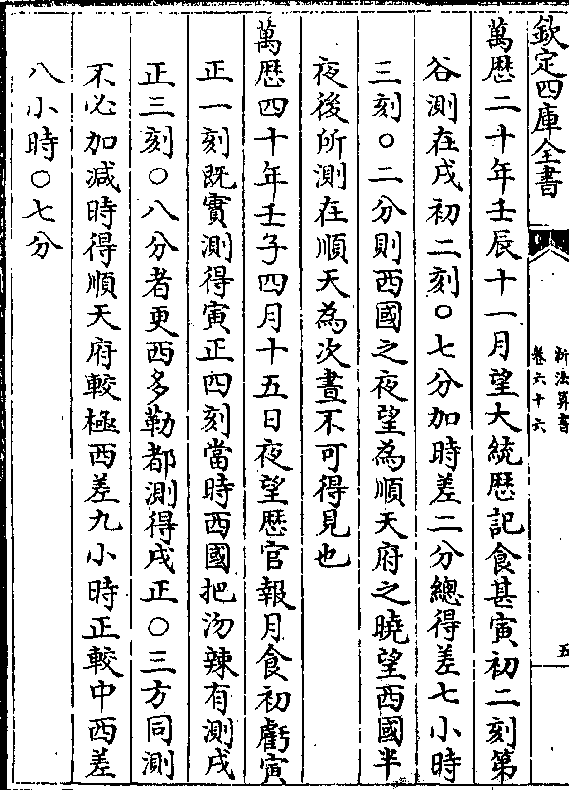 欽定四庫全書
新法算書
卷六十六
五
萬厯二十年壬辰十一月望大統厯記食甚寅初二刻第
谷測在戌初二刻○七分加時差二分總得差七小時
三刻○二分則西國之夜望為順天府之曉望西國半
夜後所測在順天為次晝不可得見也
萬厯四十年壬子四月十五日夜望厯官報月食初虧寅
正一刻既實測得寅正四刻當時西國把沕辣有測戌
正三刻○八分者更西多勒都測得戌正○三方同測
不必加減時得順天府較極西差九小時正較中西差
八小時○七分